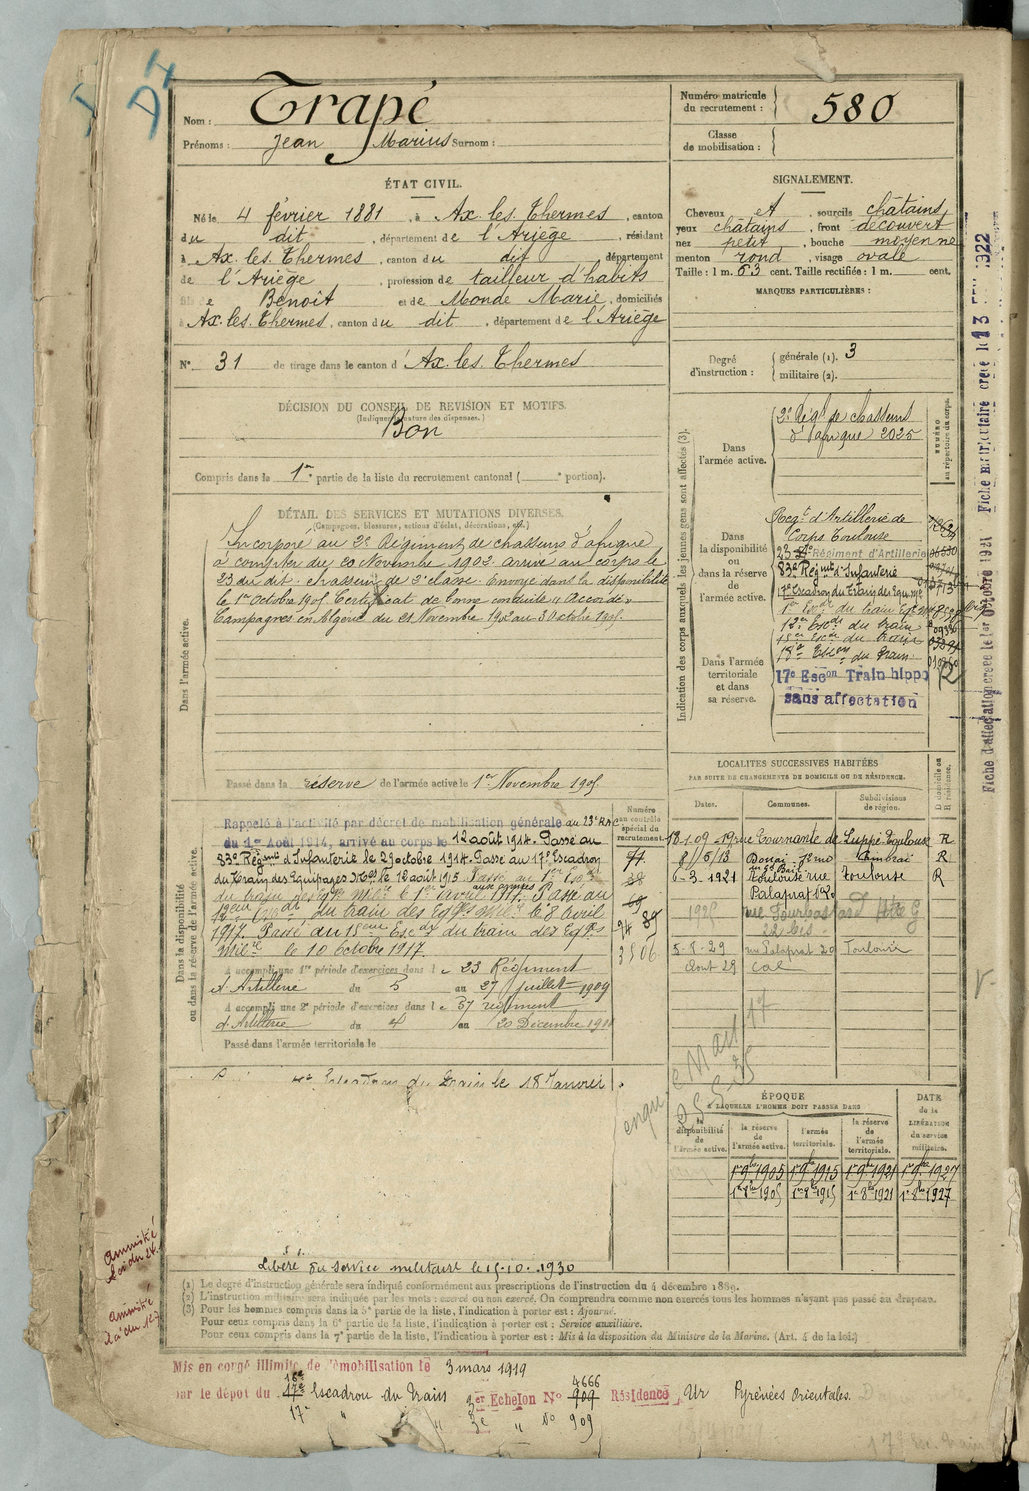 D4
Nom : Trapé
Prénoms : Jean Marius Surnom :
Numéro matricule du recrutement : 580
Classe de mobilisation :
ÉTAT CIVIL.
Né le 4 février 1881, à Ax. les. Thermes, canton
du dit, département de l'Ariège, résidant
à Ax. les. Thermes, canton du dit département
de l'Ariège, profession de tailleur d'habits
fils de Benoît et de Monde Marie, domiciliés
à Ax. les. Thermes, canton du dit, département de l'Ariège
N° 31 de tirage dans le canton d'Ax. les. Thermes
SIGNALEMENT.
Cheveux et, sourcils châtains,
yeux châtains, front découvert,
nez petit, bouche moyenne
menton rond, visage ovale
Taille : 1 m. 63 cent. Taille rectifiée : 1 m. cent.
MARQUES PARTICULIÈRES :
Degré d'instruction : générale (1). 3
militaire (2).
DÉCISION DU CONSEIL DE REVISION ET MOTIFS.
(Indiquer la nature des dispenses.)
Bon
Compris dans la 1re partie de la liste du recrutement cantonal ( e portion).
DÉTAIL DES SERVICES ET MUTATIONS DIVERSES.
(Campagnes, blessures, actions d'éclat, décorations, etc.)
Dans l'armée active.
Incorporé au 2e Régiment de chasseurs d'afrique
à compter du 20 Novembre 1902. arrivé au corps le
23 du dit. chasseur de 2e classe. Envoyé dans la disponibilité
le 1er Octobre 1905. Certificat de bonne conduite "Accordé"
Campagnes en Algérie du 21 Novembre 1902 au 30 octobre 1905.
Passé dans la réserve de l'armée active le 1er Novembre 1905
Indication des corps auxquels les jeunes gens sont affectés (3).
NUMÉRO au répertoire du corps.
Dans l'armée active.
2e Régt de chasseurs
d'afrique 2025
Dans la disponibilité ou dans la réserve de l'armée active.
Regt d'Artillerie de
Corps Toulouse
23 Régiment d'Artillerie
83e Régmt d'Infanterie
17e Escadron du Train des Equ. Mil
12e Escdr du train
18e Escon du Train
Dans l'armée territoriale et dans sa réserve.
17e Escon Train hippo
sans affectation
Fiche d'affectation créée le 1er Octobre 1921
Fiche matriculaire créée le 13
Dans la disponibilité ou dans la réserve de l'armée active.
Numéro au contrôle spécial du recrutement.
Rappelé à l'activité par décret de mobilisation générale au 23e RAC
du 1er Août 1914, arrivé au corps le 12 août 1914. Passé au
83e Régmt d'Infanterie le 29 octobre 1914. Passé au 17e Escadron
du Train des Equipages Mres le 12 août 1915 Passé au 1er Esc
du train des Eqges Milre le 1er avril 1917. Passé au
du train des Eqges milre le 8 Avril
1917. Passé du 15ème Escdr du train des Eqges
milre le 10 Octobre 1917.
A accompli une 1re période d'exercices dans le 23 Régiment
d'Artillerie du 5 au 27 juillet 1909
A accompli une 2e période d'exercices dans le 57 régiment
d'Artillerie du 4 au 20 Décembre 1911
Passé dans l'armée territoriale le
Escadron du Train le 18 Janvier
94 89
3506
LOCALITÉS SUCCESSIVES HABITÉES
PAR SUITE DE CHANGEMENTS DE DOMICILE OU DE RÉSIDENCE.
Dates. Communes. Subdivisions de région. D domicile ou R résidence.
18.1.09 19 rue Tournante de Luppé Toulouse R
8/5/13 Douai Cambrai R
6-3-1921 Toulouse rue Toulouse R
Palaprat
1925
5-8-29 rue Palaprat 20 Toulouse
Aout 29
25-5-35
ÉPOQUE
A LAQUELLE L'HOMME DOIT PASSER DANS
la disponibilité de l'armée active.
la réserve de l'armée active.
l'armée territoriale.
la réserve de l'armée territoriale.
DATE de la LIBÉRATION du service militaire.
1er 9bre 1905 1er 9bre 1915 1er 9bre 1921 1er 9bre 1927
1er 8bre 1905 1er 8bre 1915 1er 8bre 1921 1er 8bre 1927
Libéré du service militaire le 15.10.1930
(1) Le degré d'instruction générale sera indiqué conformément aux prescriptions de l'instruction du 4 décembre 1889.
(2) L'instruction militaire sera indiquée par les mots : exercé ou non exercé. On comprendra comme non exercés tous les hommes n'ayant pas passé au drapeau.
(3) Pour les hommes compris dans la 5e partie de la liste, l'indication à porter est : Ajourné.
Pour ceux compris dans la 6e partie de la liste, l'indication à porter est : Service auxiliaire.
Pour ceux compris dans la 7e partie de la liste, l'indication à porter est : Mis à la disposition du Ministre de la Marine. (Art. 4 de la loi.)
Amnistié
Loi du 24.
Amnistié
Mis en congé illimité de démobilisation le 3 mars 1919
par le dépôt du 17e Escadron du Train 3er Echelon N° 909 4666 Résidence, Ur Pyrénées Orientales.
17e " 3e " N° 909